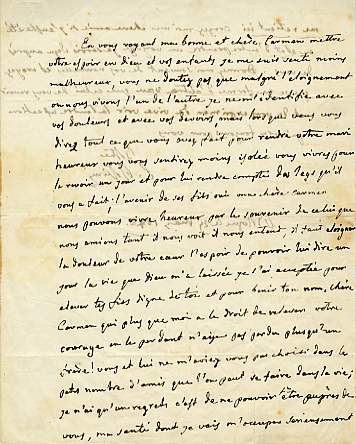 En vous voyant ma bonne et chère Carmen mettre
votre espoir en dieu et vos enfants je me suis senti moins
malheureux, vous ne doutez pas que malgré l'éloignement
ou nous vivons l'un de l'autre je ne m'identifie avec
vos douleurs et avec vos devoirs mais lorsque vous vous
direz tout ce que vous avez fait pour rendre votre mari
heureux vous vous sentirez moins isolée vous vivrez pour
le revoir un jour et pour lui rendre compte des legs qu'il
vous a fait; l'avenir de ses fils oui ma chère Carmen
nous pouvons vivre heureux par le souvenir de celui que
nous aimions tant il nous voit il nous entend, il faut éloigner
la douleur de votre cœur l'espoir de pouvoir lui dire un
jour la vie que dieu m'a laissée je l'ai acceptée pour
élever tes fils digne de toi et pour bénir ton nom, chère
Carmen qui plus que moi a le droit de relever votre
courage en le perdant n'ai je pas perdu plus qu'un
frère! vous et lui ne m'aviez vous pas choisi dans le
petit nombre d'amis que l'on peut se faire dans la vie;
je n'ai qu'un regrets c'est de ne pouvoir être auprès de
vous, ma santé dont je vais m'occuper sérieusement